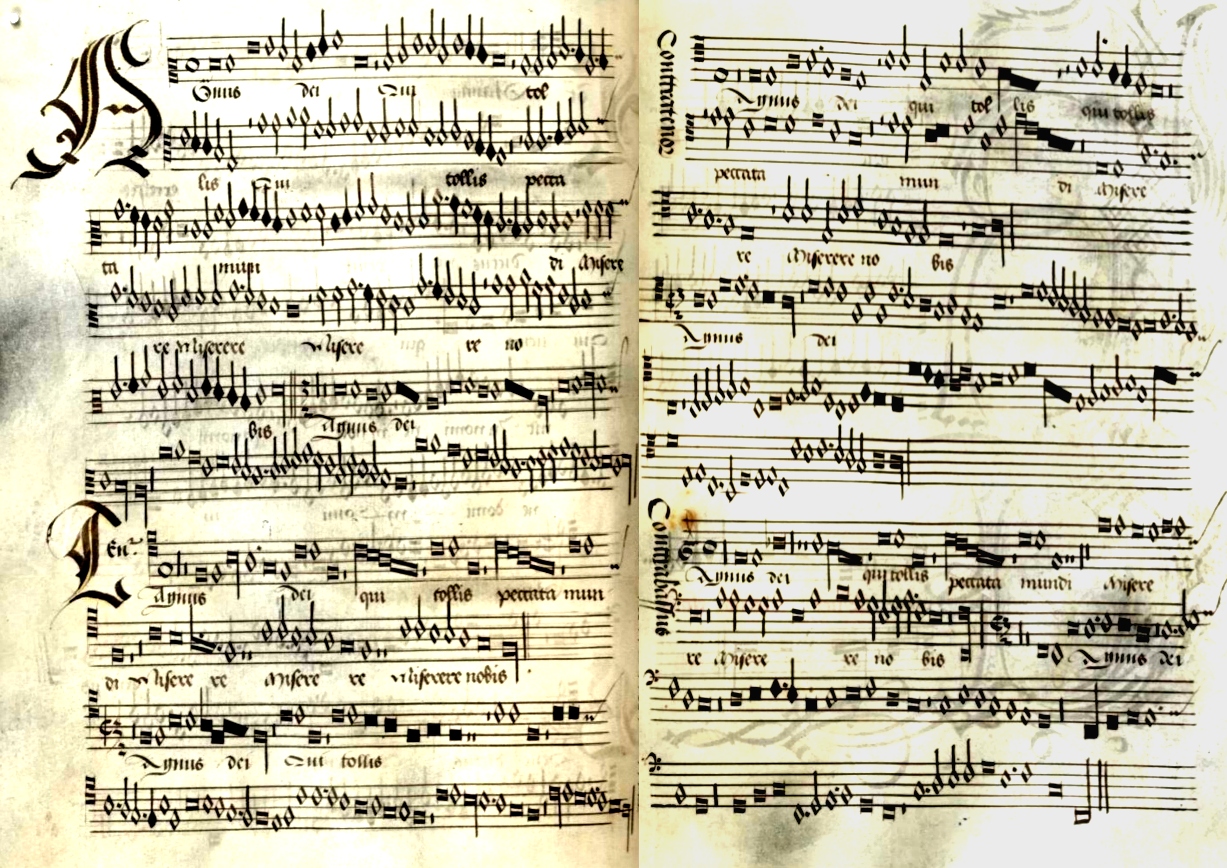 Agnus dei Qui tol
lis Qui tollis pecca
ta mun di Misere
re Miserere Misere re no
bis Agnus dei
Ten.
Agnus dei qui tollis peccata mun
di Misere re Misere re Miserere nobis
Agnus dei Qui tollis
Contratenor
Agnus dei qui tol lis qui tollis
peccata mun di Misere
re Miserere no bis
Agnus dei
Contrabassus
Agnus dei qui tollis peccata mundi Misere
re Misere re no bis Agnus dei